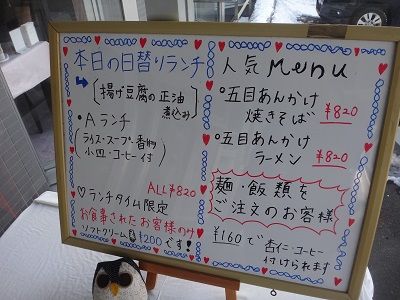 本日の日替りランチ
揚げ豆腐の正油
煮込み
・Aランチ
(ライス・スープ・香物
小皿・コーヒー付)
ALL¥820
♡ランチタイム限定
お食事されたお客様のみ
ソフトクリーム ¥200です!
人気 Menu
・五目あんかけ
焼きそば ¥820
・五目あんかけ
ラーメン ¥820
麺・飯類を
ご注文のお客様
¥160で 杏仁・コーヒー
付けられます